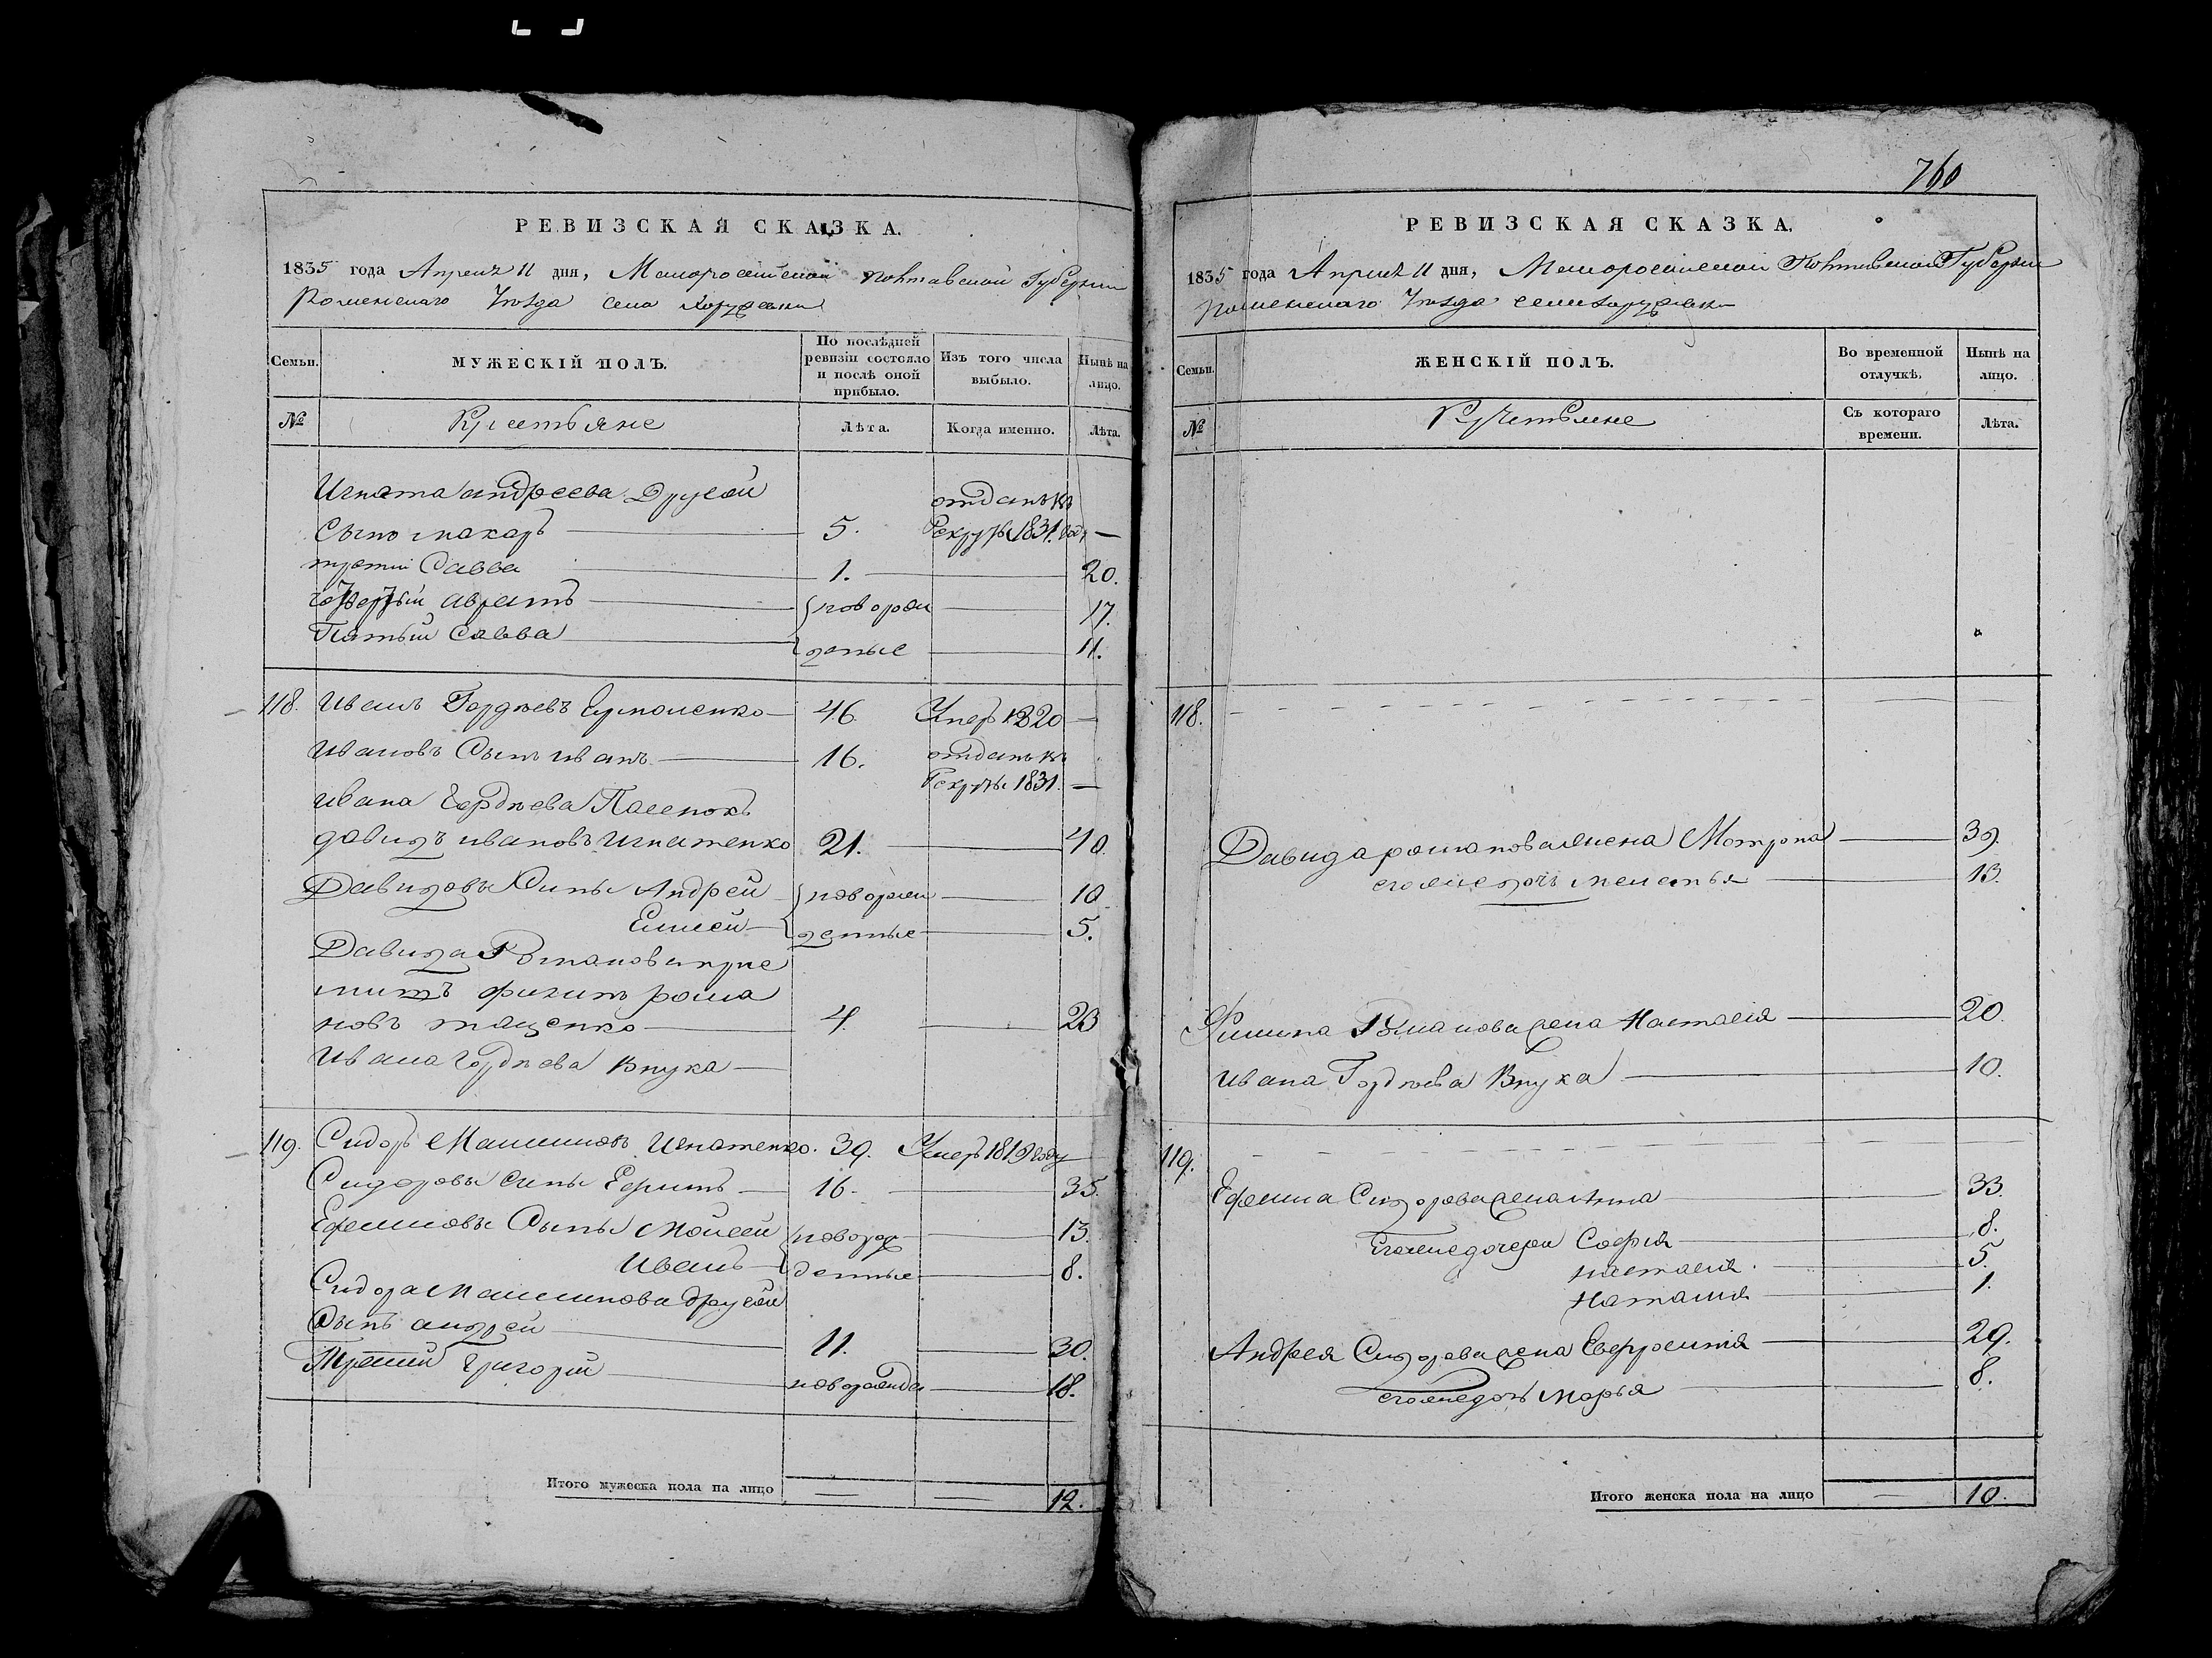 РЕВИЗСКАЯ СКАЗКА.
1835 года Апреля 11 дня, Малоросійской Полтавской Губерніи
Роменскаго Уѣзда села Коружевки
Семьи.
МУЖЕСКІЙ ПОЛЪ.
По послѣдней ревизіи состояло и послѣ оной прибыло.
Изъ того числа выбыло.
Нынѣ на лицо.
№
Крестьяне
Лѣта.
Когда именно.
Лѣта.
Игната Андреева Другой
Сынъ Макаръ 5. отданъ въ Рекруты 1831. году —
третій Савва 1. 20.
Четвертый Аврамъ новорож 17.
Пятый Савва денные 11.
118. Иванъ Гордѣевъ Ермоленко 46. Умеръ 1820 —
Ивановъ Сынъ Иванъ 16. отданъ въ Рекруты 1831. —
Ивана Гордѣева Пасенокъ
Давидъ Ивановъ Игнатенко 21. 40.
Давидовы Сины Андрей новорож 10
Елисей денные 5.
Давида Романова прие
мишъ Филипъ Рома
новъ Тащенко 4. 23
Ивана Гордѣева Внука
119. Сидоръ Максимовъ Игнатенко. 39. Умеръ 1819 году
Сидоровы сины Ефимъ 16. 35.
Ефимовы Сыны Мойсей новорож 13.
Иванъ денные 8.
Сидора Максимова другой
Сынъ Андрей 11. 30.
Третій Григорій новорожде 18.
Итого мужеска пола на лицо 12.
760
РЕВИЗСКАЯ СКАЗКА.
1835 года Апреля 11 дня, Малоросійской Полтавской Губерніи
Роменскаго Уѣзда села Коружевки
Семьи.
ЖЕНСКІЙ ПОЛЪ.
Во временной отлучкѣ.
Нынѣ на лицо.
№
Крестьяне
Съ котораго времени.
Лѣта.
118.
Давида Романова жена Мотрона 39.
его же дочь Меланья 13.
Филипа Романова жена Настасія 20.
Ивана Гордѣева Внука 10.
119.
Ефима Сидорова жена Анна 33.
Его же дочери Софія 8.
Настасія. 5.
Наталія 1.
Андрея Сидорова жена Евфросинія 29.
его же дочь Марья 8.
Итого женска пола на лицо — 10.